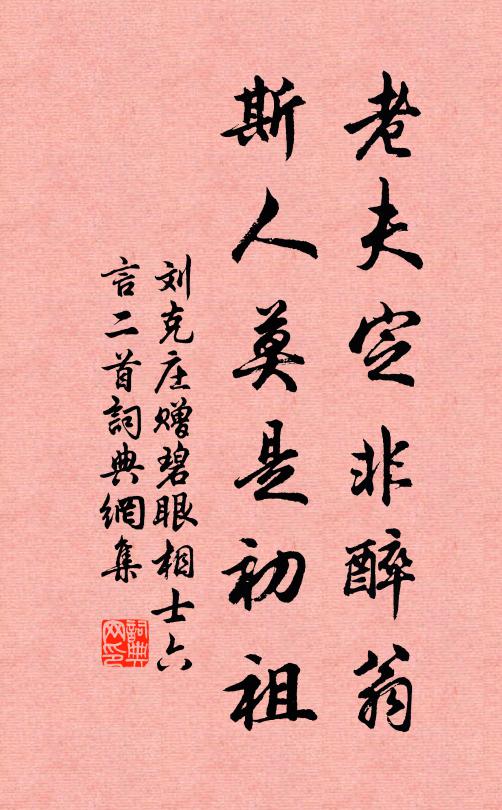 老夫定非醉翁
斯人莫是初祖
刘克庄赠碧眼相士六
言二首詞典網集
詞典网印